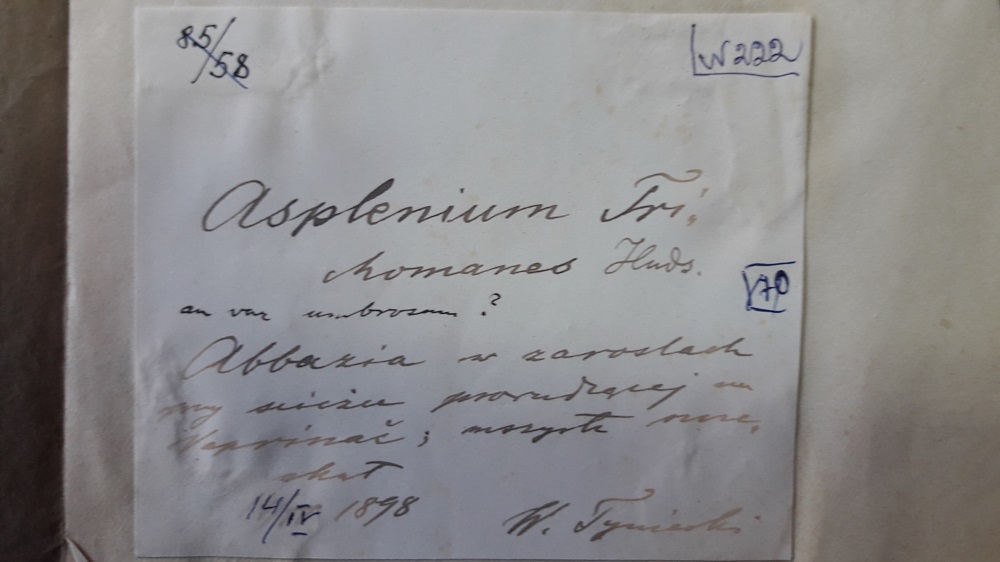 85/58
W222
Asplenium Tri,
chomanes Huds.
V70
an var umbrosum ?
Abbazia w zaroslach
prowadzącej na
Veprinač ;
skał
14/IV 1898
W. Tyniecki